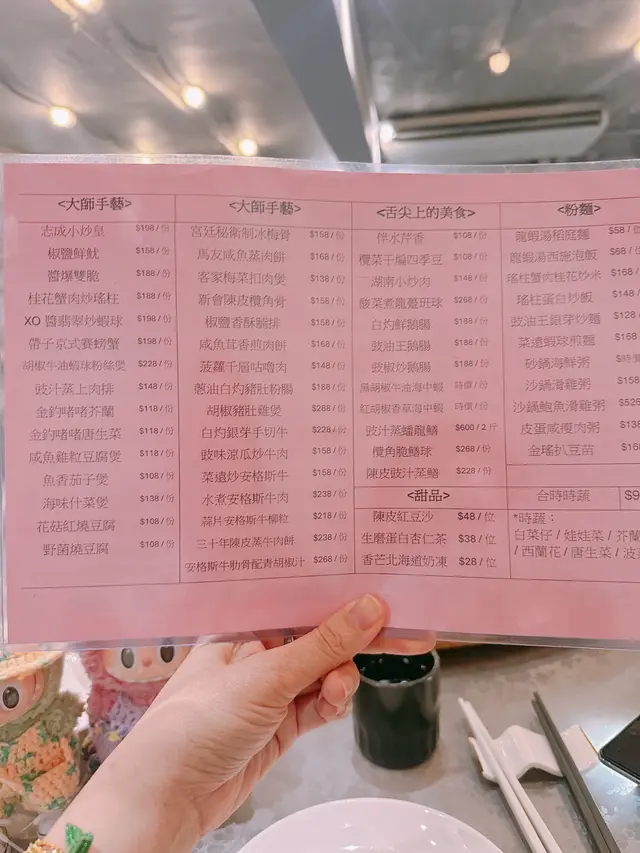 <大師手藝>
志成小炒皇 $198 / 份
椒鹽鮮魷 $158 / 份
醬爆雙脆 $188 / 份
桂花蟹肉炒瑤柱 $188 / 份
XO 醬翡翠炒蝦球 $198 / 份
帶子京式賽螃蟹 $198 / 份
胡椒牛油蝦球粉絲煲 $228 / 份
豉汁蒸上肉排 $148 / 份
金鈞啫啫芥蘭 $118 / 份
金鈞啫啫唐生菜 $118 / 份
咸魚雞粒豆腐煲 $118 / 份
魚香茄子煲 $108 / 份
海味什菜煲 $138 / 份
花菇紅燒豆腐 $108 / 份
野菌燒豆腐 $108 / 份
<大師手藝>
宮廷秘衛制冰梅骨 $158 / 份
馬友咸魚蒸肉餅 $168 / 份
客家梅菜扣肉煲 $138 / 份
新會陳皮欖角骨 $158 / 份
椒鹽香酥腩排 $158 / 份
咸魚茸香煎肉餅 $168 / 份
菠蘿千層咕嚕肉 $148 / 份
蔥油白灼豬肚粉腸 $188 / 份
胡椒豬肚雞煲 $268 / 份
白灼銀芽手切牛 $228 / 份
豉味涼瓜炒牛肉 $158 / 份
菜遠炒安格斯牛 $158 / 份
水煮安格斯牛肉 $238 / 份
蒜片安格斯牛柳粒 $218 / 份
三十年陳皮蒸牛肉餅 $238 / 份
安格斯牛肋骨配青胡椒汁 $268 / 份
<舌尖上的美食>
伴水芹香 $108 / 份
欖菜干煸四季豆 $108 / 份
湖南小炒肉 $148 / 份
酸菜煮龍躉班球 $268 / 份
白灼鮮鵝腸 $188 / 份
豉油王鵝腸 $188 / 份
豉椒炒鵝腸 $188 / 份
黑胡椒牛油海中蝦 時價 / 份
紅胡椒香草海中蝦 時價 / 份
豉汁蒸蟠龍鱔 $600 / 2 斤
欖角脆鱔球 $268 / 份
陳皮豉汁蒸鱔 $228 / 份
<甜品>
陳皮紅豆沙 $48 / 位
生磨蛋白杏仁茶 $38 / 位
香芒北海道奶凍 $28 / 位
<粉麵>
龍蝦湯稻庭麵 $58 / 位
龍蝦湯西施泡飯 $68 / 位
瑤柱蟹肉桂花炒米 $168 /
瑤柱蛋白炒飯 $148 /
豉油王銀芽炒麵 $128 /
菜遠蝦球煎麵 $168 /
砂鍋海鮮粥 $時價
沙鍋滑雞粥 $158
沙鍋鮑魚滑雞粥 $526
皮蛋咸瘦肉粥 $138
金瑤扒豆苗 $168
合時時蔬 $9
*時蔬：
白菜仔 / 娃娃菜 / 芥蘭
/ 西蘭花 / 唐生菜 / 波菜